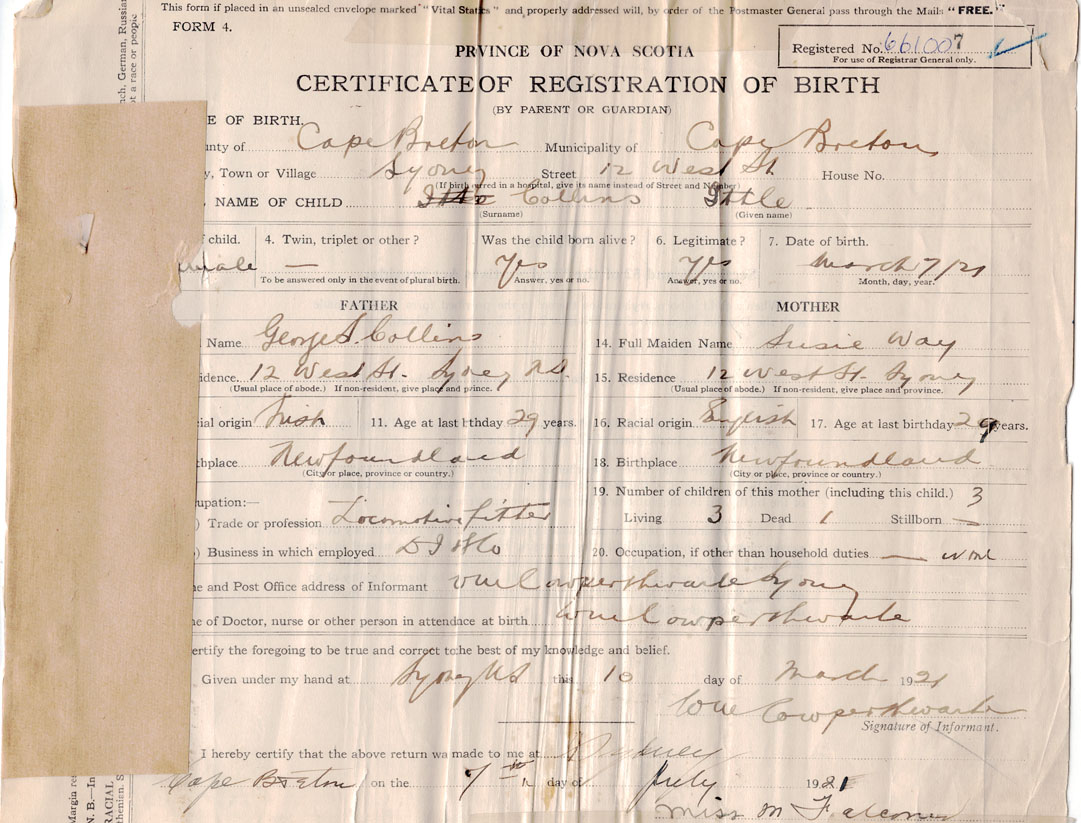 This form if placed in an unsealed envelope marked "Vital Statics" and properly addressed will, by order of the Postmaster General pass through the Mails "FREE."
FORM 4.
PRVINCE OF NOVA SCOTIA
Registered No. 661007
For use of Registrar General only.
CERTIFICATE OF REGISTRATION OF BIRTH
(BY PARENT OR GUARDIAN)
E OF BIRTH.
unty of Cape Breton Municipality of Cape Breton
, Town or Village Sydney Street 12 West St. House No.
(If birth urred in a hospital, give its name instead of Street and Number)
NAME OF CHILD Collins
(Surname) (Given name)
f child. 4. Twin, triplet or other? Was the child born alive? 6. Legitimate? 7. Date of birth.
male — Yes Yes March 7/21
To be answered only in the event of plural birth. Answer, yes or no. Answer, yes or no. Month, day, year.
FATHER MOTHER
Name George S. Collins 14. Full Maiden Name Susie Way
idence. 12 West St. Sydney N.S. 15. Residence 12 West St. Sydney
(Usual place of abode.) If non-resident, give place and prince. (Usual place of abode.) If non-resident, give place and province.
ial origin Irish 11. Age at last bthday 29 years. 16. Racial origin English 17. Age at last birthday 29 years.
thplace Newfoundland 18. Birthplace Newfoundland
(City or place, province or country.) (City or place, province or country.)
upation:— 19. Number of children of this mother (including this child.) 3
) Trade or profession Locomotive fitter Living 3 Dead 1 Stillborn —
) Business in which employed D I &Co 20. Occupation, if other than household duties —
e and Post Office address of Informant Wm Cowperthwaite Sydney
e of Doctor, nurse or other person in attendace at birth Wm Cowperthwaite
ertify the foregoing to be true and correct to the best of my knowledge and belief.
Given under my hand at Sydney NS this 10 day of March 1921
Wm Cowperthwaite
Signature of Informant.
I hereby certify that the above return wa made to me at Sydney
Cape Breton on the 7th day of July 1921
Miss M Falconer
nch, German, Russian
ot a race or people
Margin res
N. B.—In
RACIAL
thenian. S